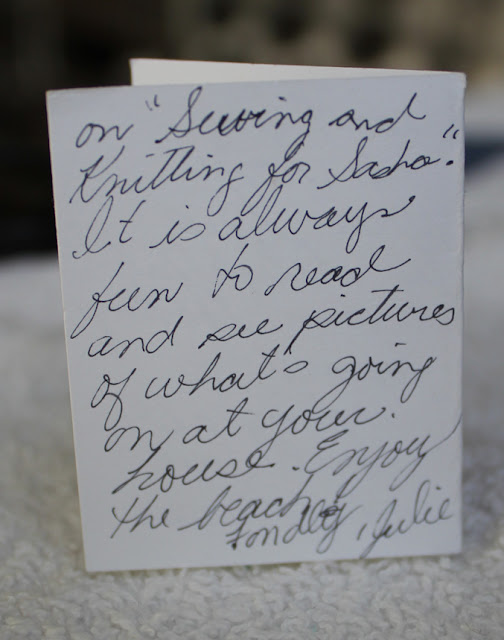 on "Sewing and
Knitting for Sasha".
It is always
fun to read
and see pictures
of what's going
on at your
house. Enjoy
the beach,
Fondly, Julie